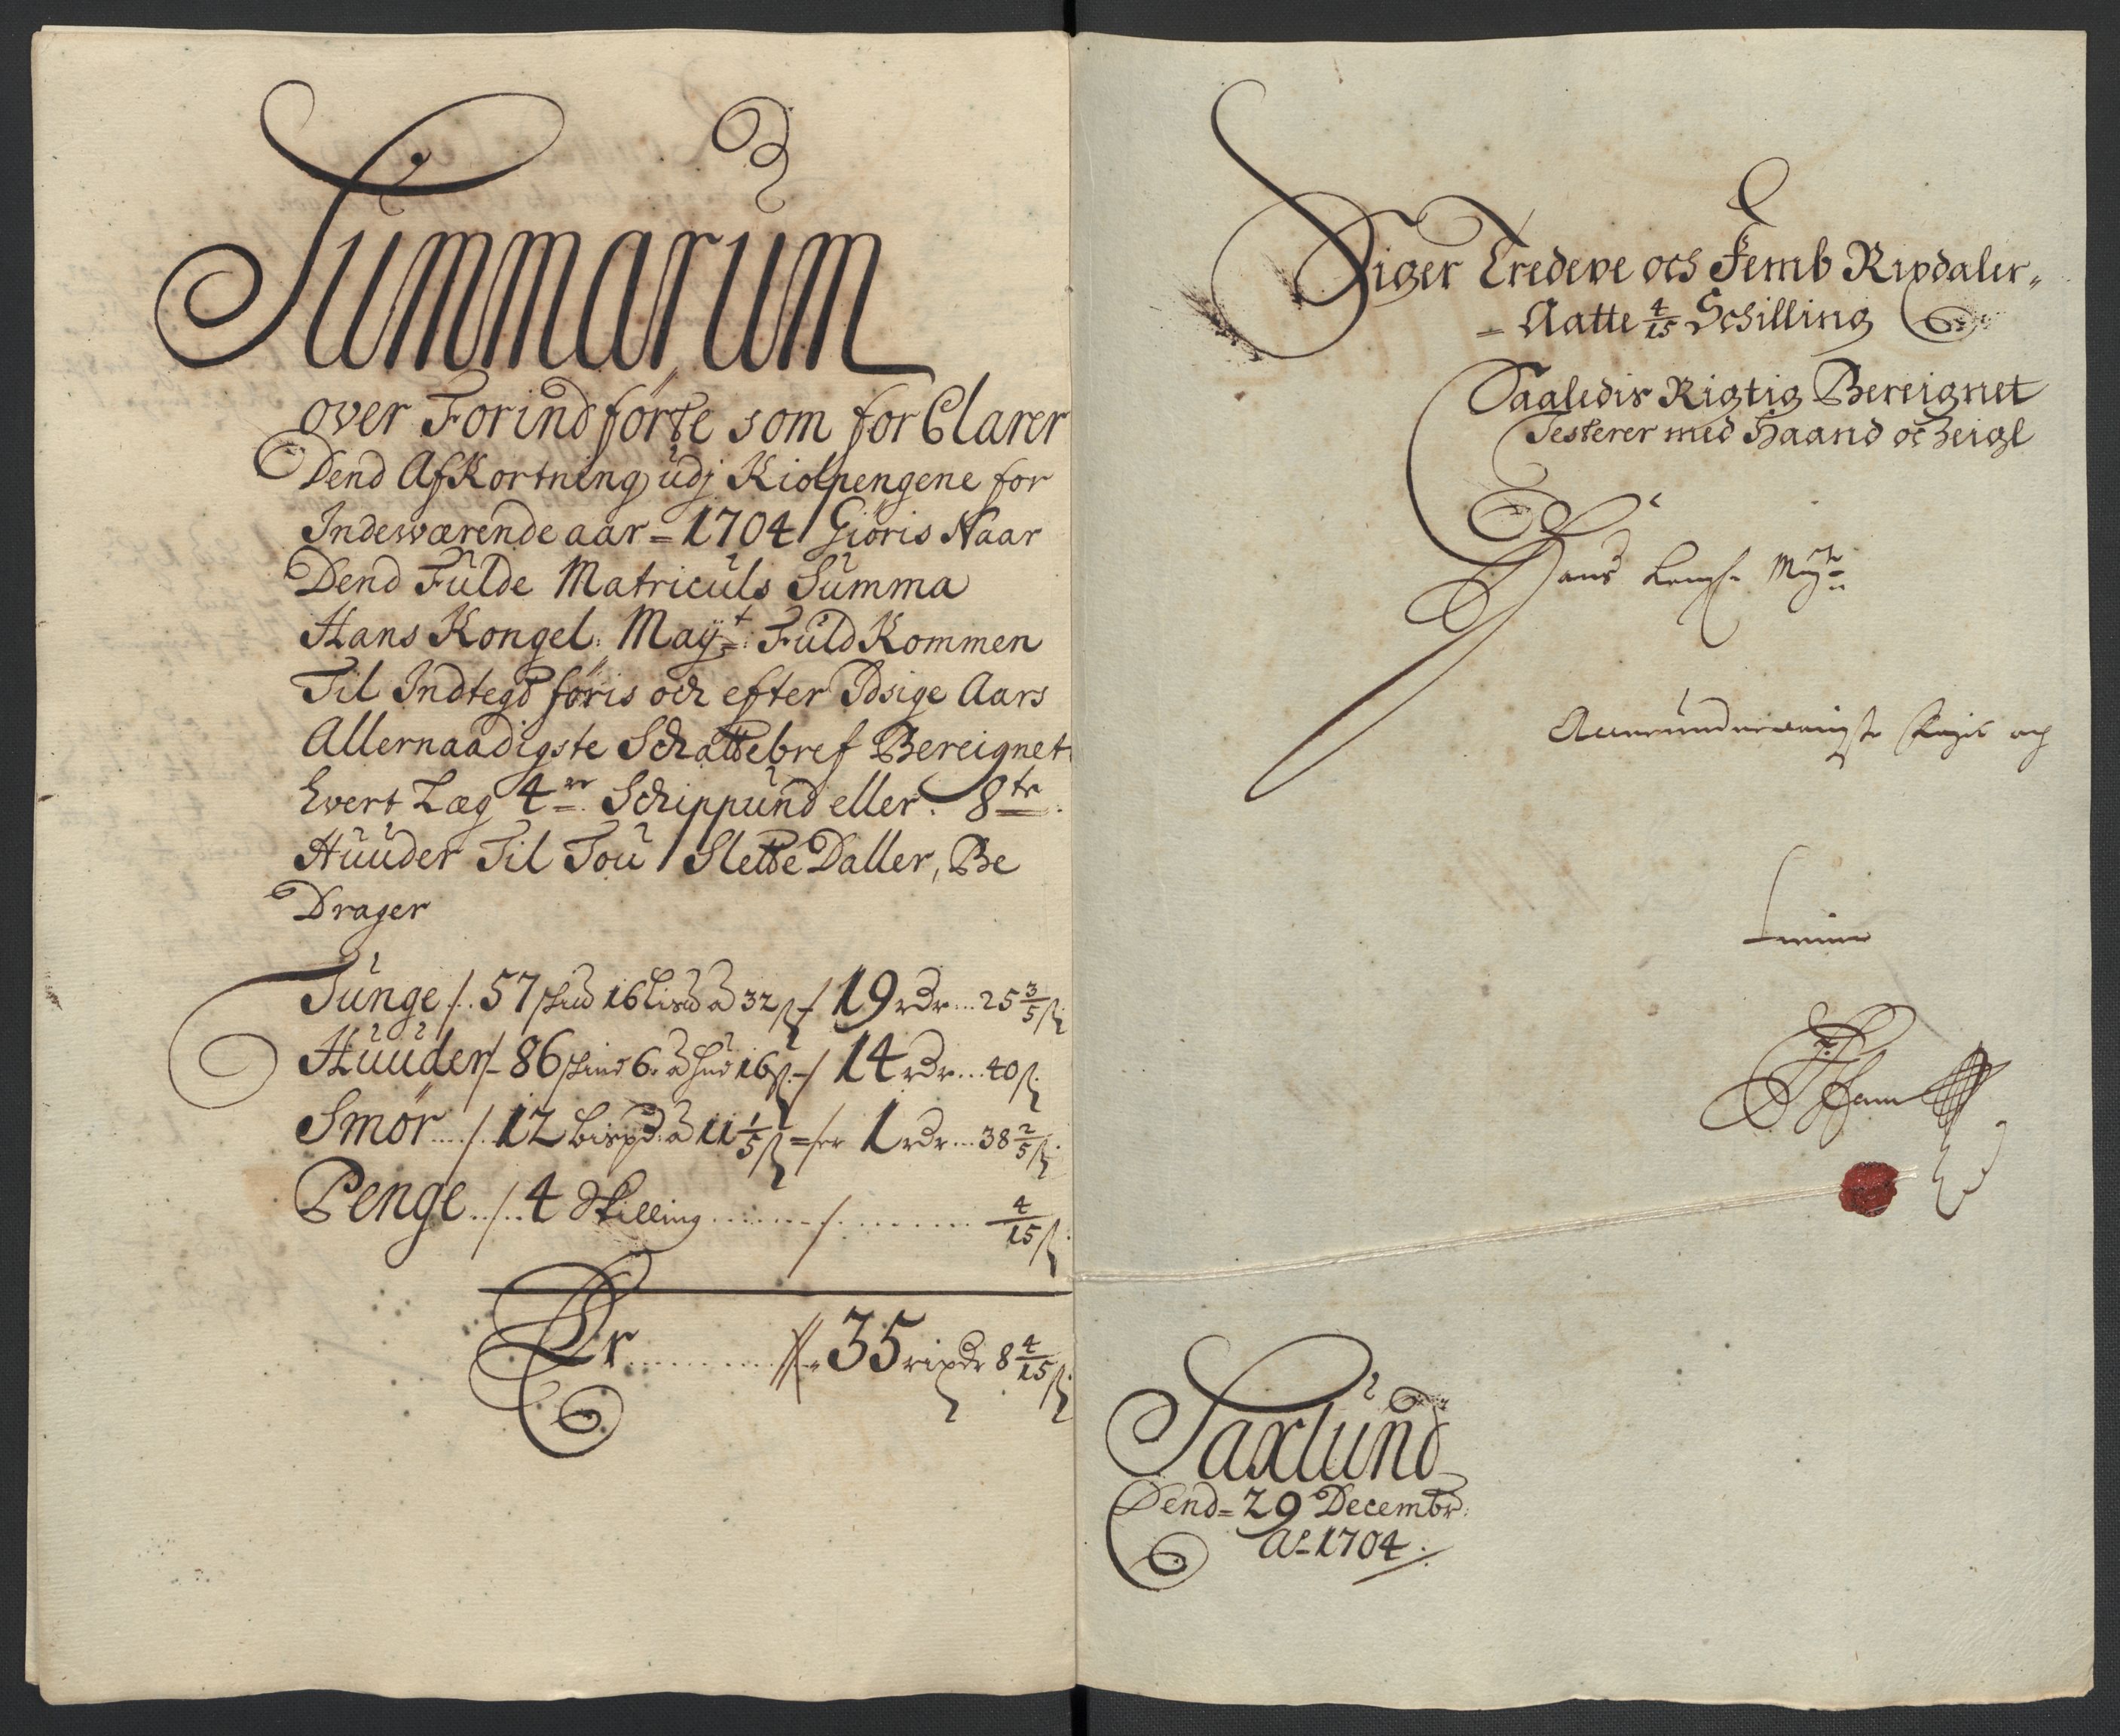 Summarum
over Forindførte som for Clarer
Dend AfKortning udj Kiolpengene for
Indeværende aar = 1704 Giöris Naar
Dend Fulde Matriculs Summa
Hans Kongel: Mayt: FuldKommen
Til Indtegt føris och efter Idsige Aars
Allernaadigste Schattebref Bereignet
Hvert Læg 4er Schippund eller 8te
Huuder Til Tou Slette Daller, Be
Drager
Tunge /. 57 16 Lispd a 32 ß / 19 rdr ... 25 3/5 ß
Huuder /- 86 6 a hud 16 ß / 14 rdr ... 40 ß
Smör .... /. 12 Lispd: a 11 1/5 ß = /er 1 rdr ... 38 2/5 ß
Penge ../.. 4 Skilling ........ / ......... 4/15 ß
Er .......... // 35 rixdr 8 4/15 ß
Siger Tredeve och Femb Rixdaler
= Aatte 4/15 Schilling
Saaledis Rigtig Bereignet
Testerer med Haand oc Zeigl
Hans Mayts
Allerunderdanigste och
Saxlund
Dend = 29 Decembr:
Ao 1704